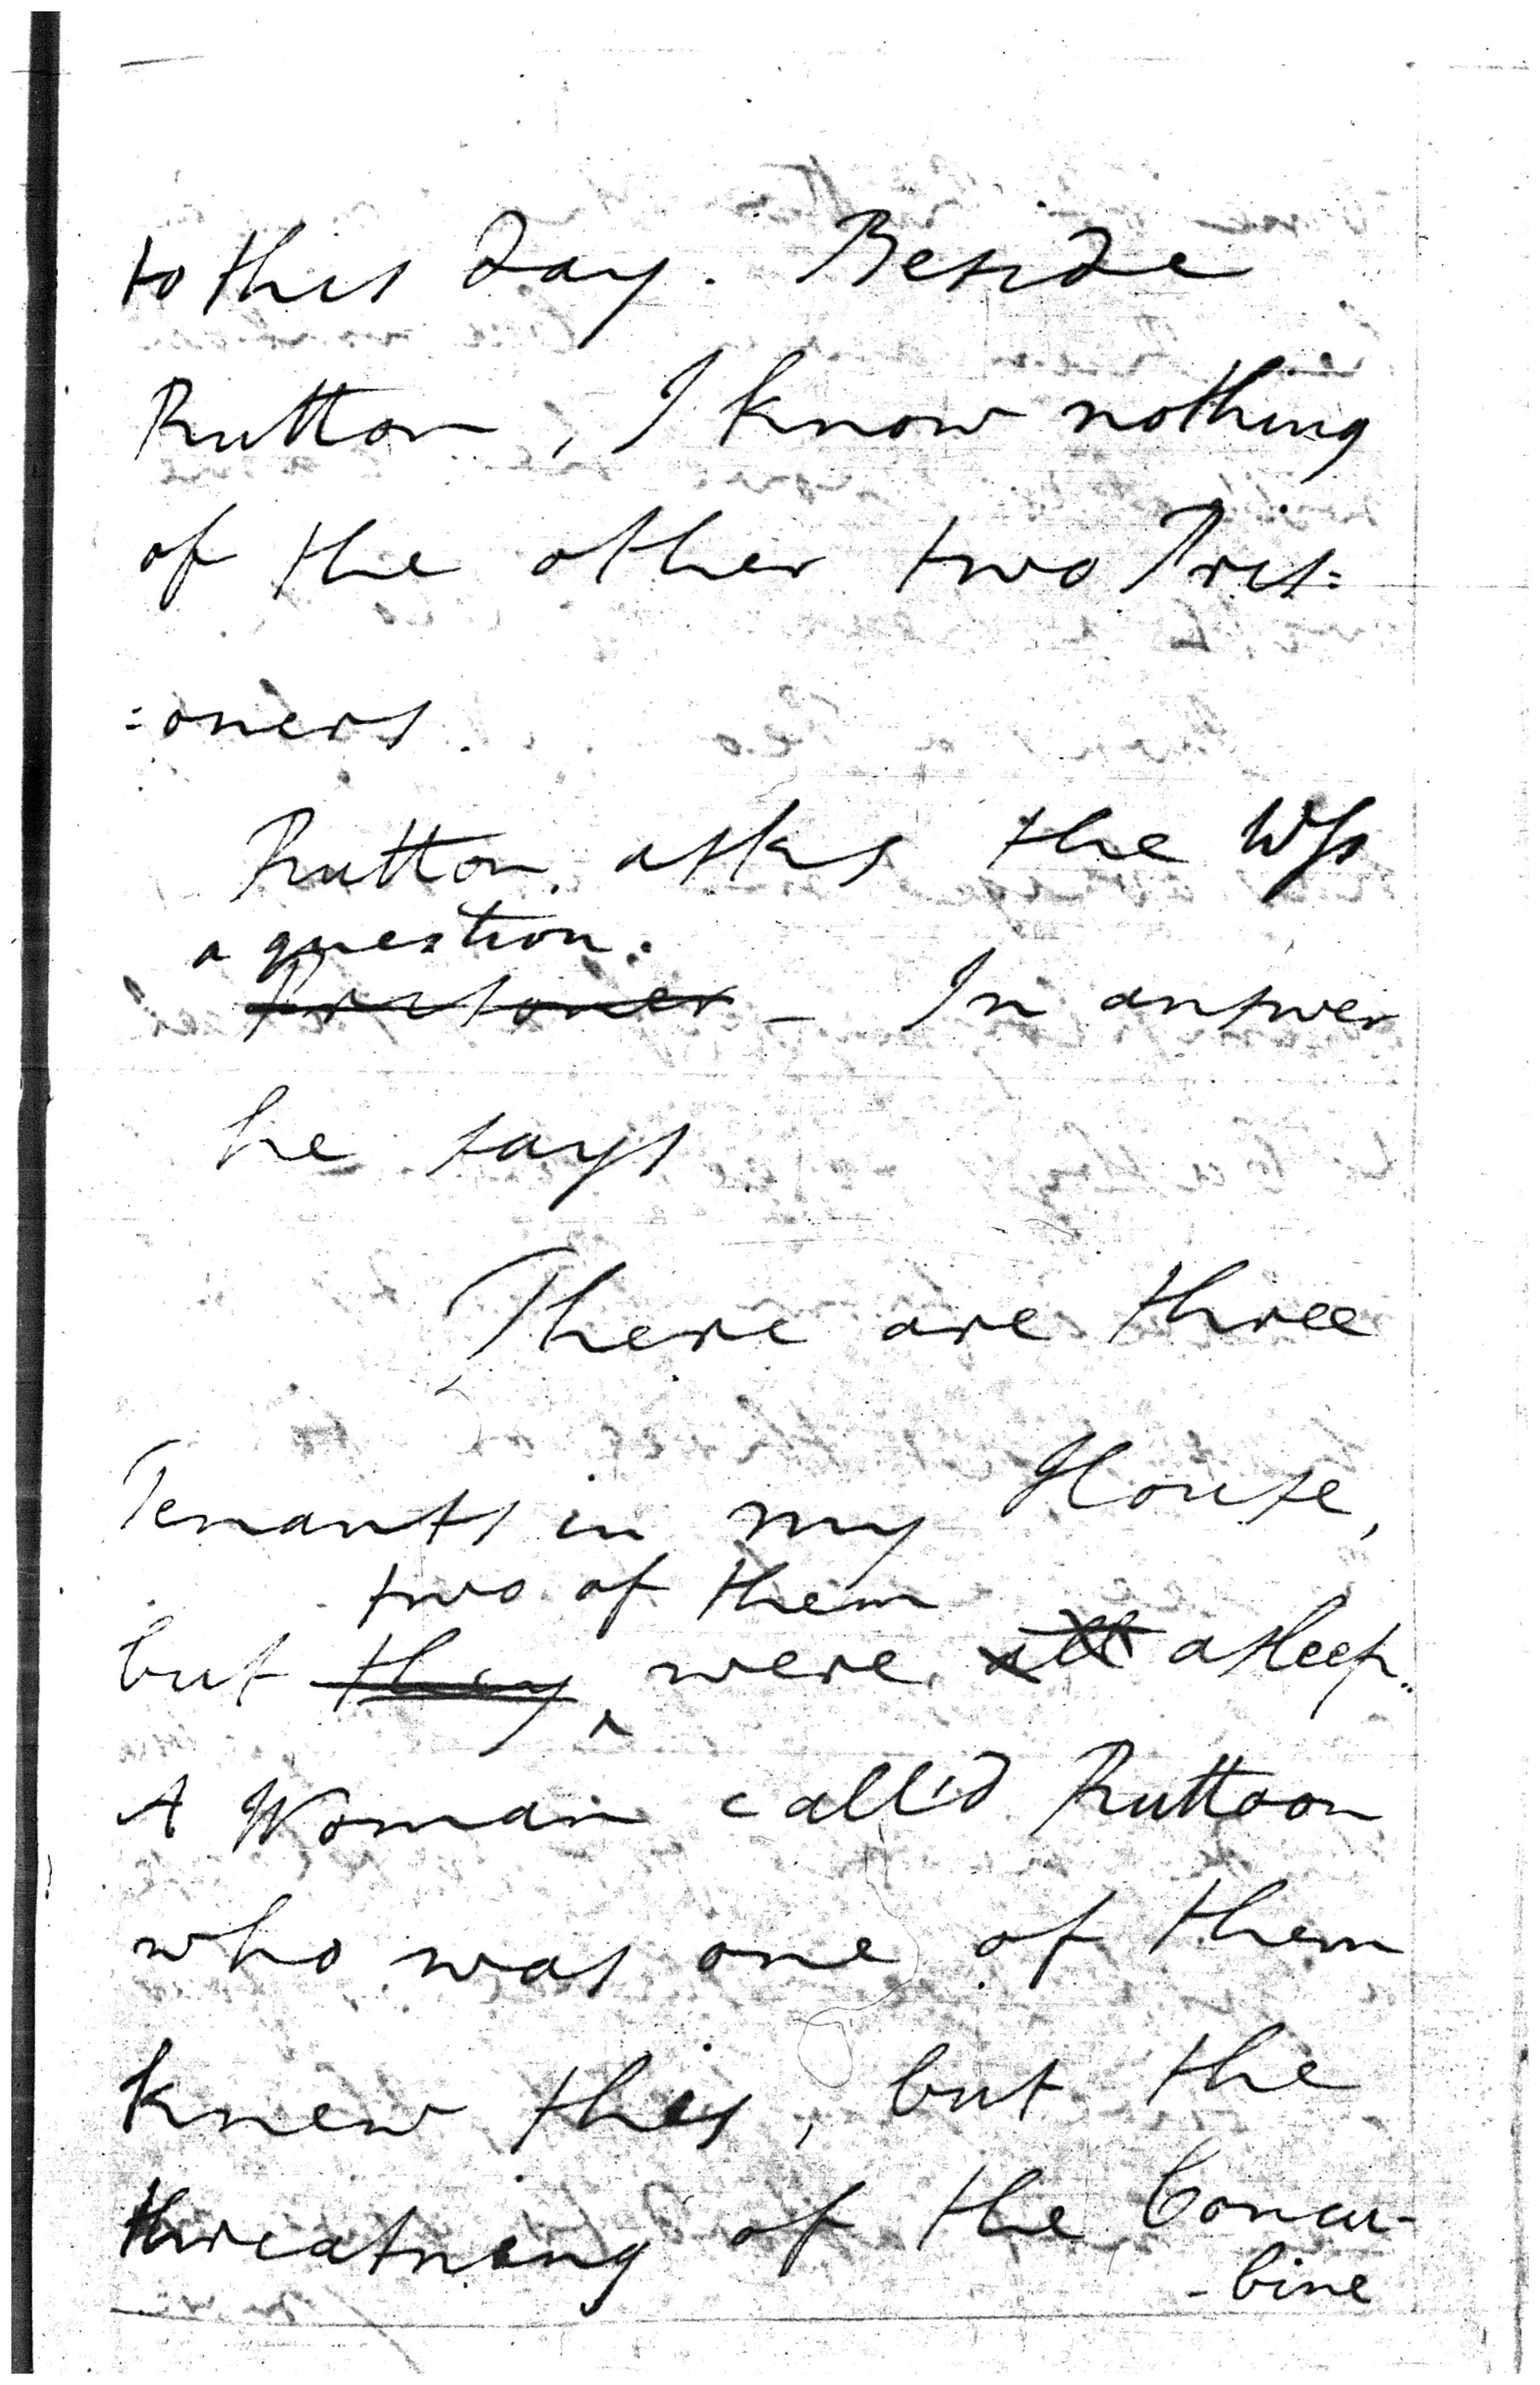 to this Day. Beside
Rutton, I know nothing
of the other two Pris=
=oners.
Rutton, asks the Wss
a question.
Prisoner - In answer
he says
There are three
Tenants in my House,
two of them
but they ^ were all asleep.
A Woman call'd Ruttoon
who was one of them
knew this, but the
threatning of the Concu-
-bine